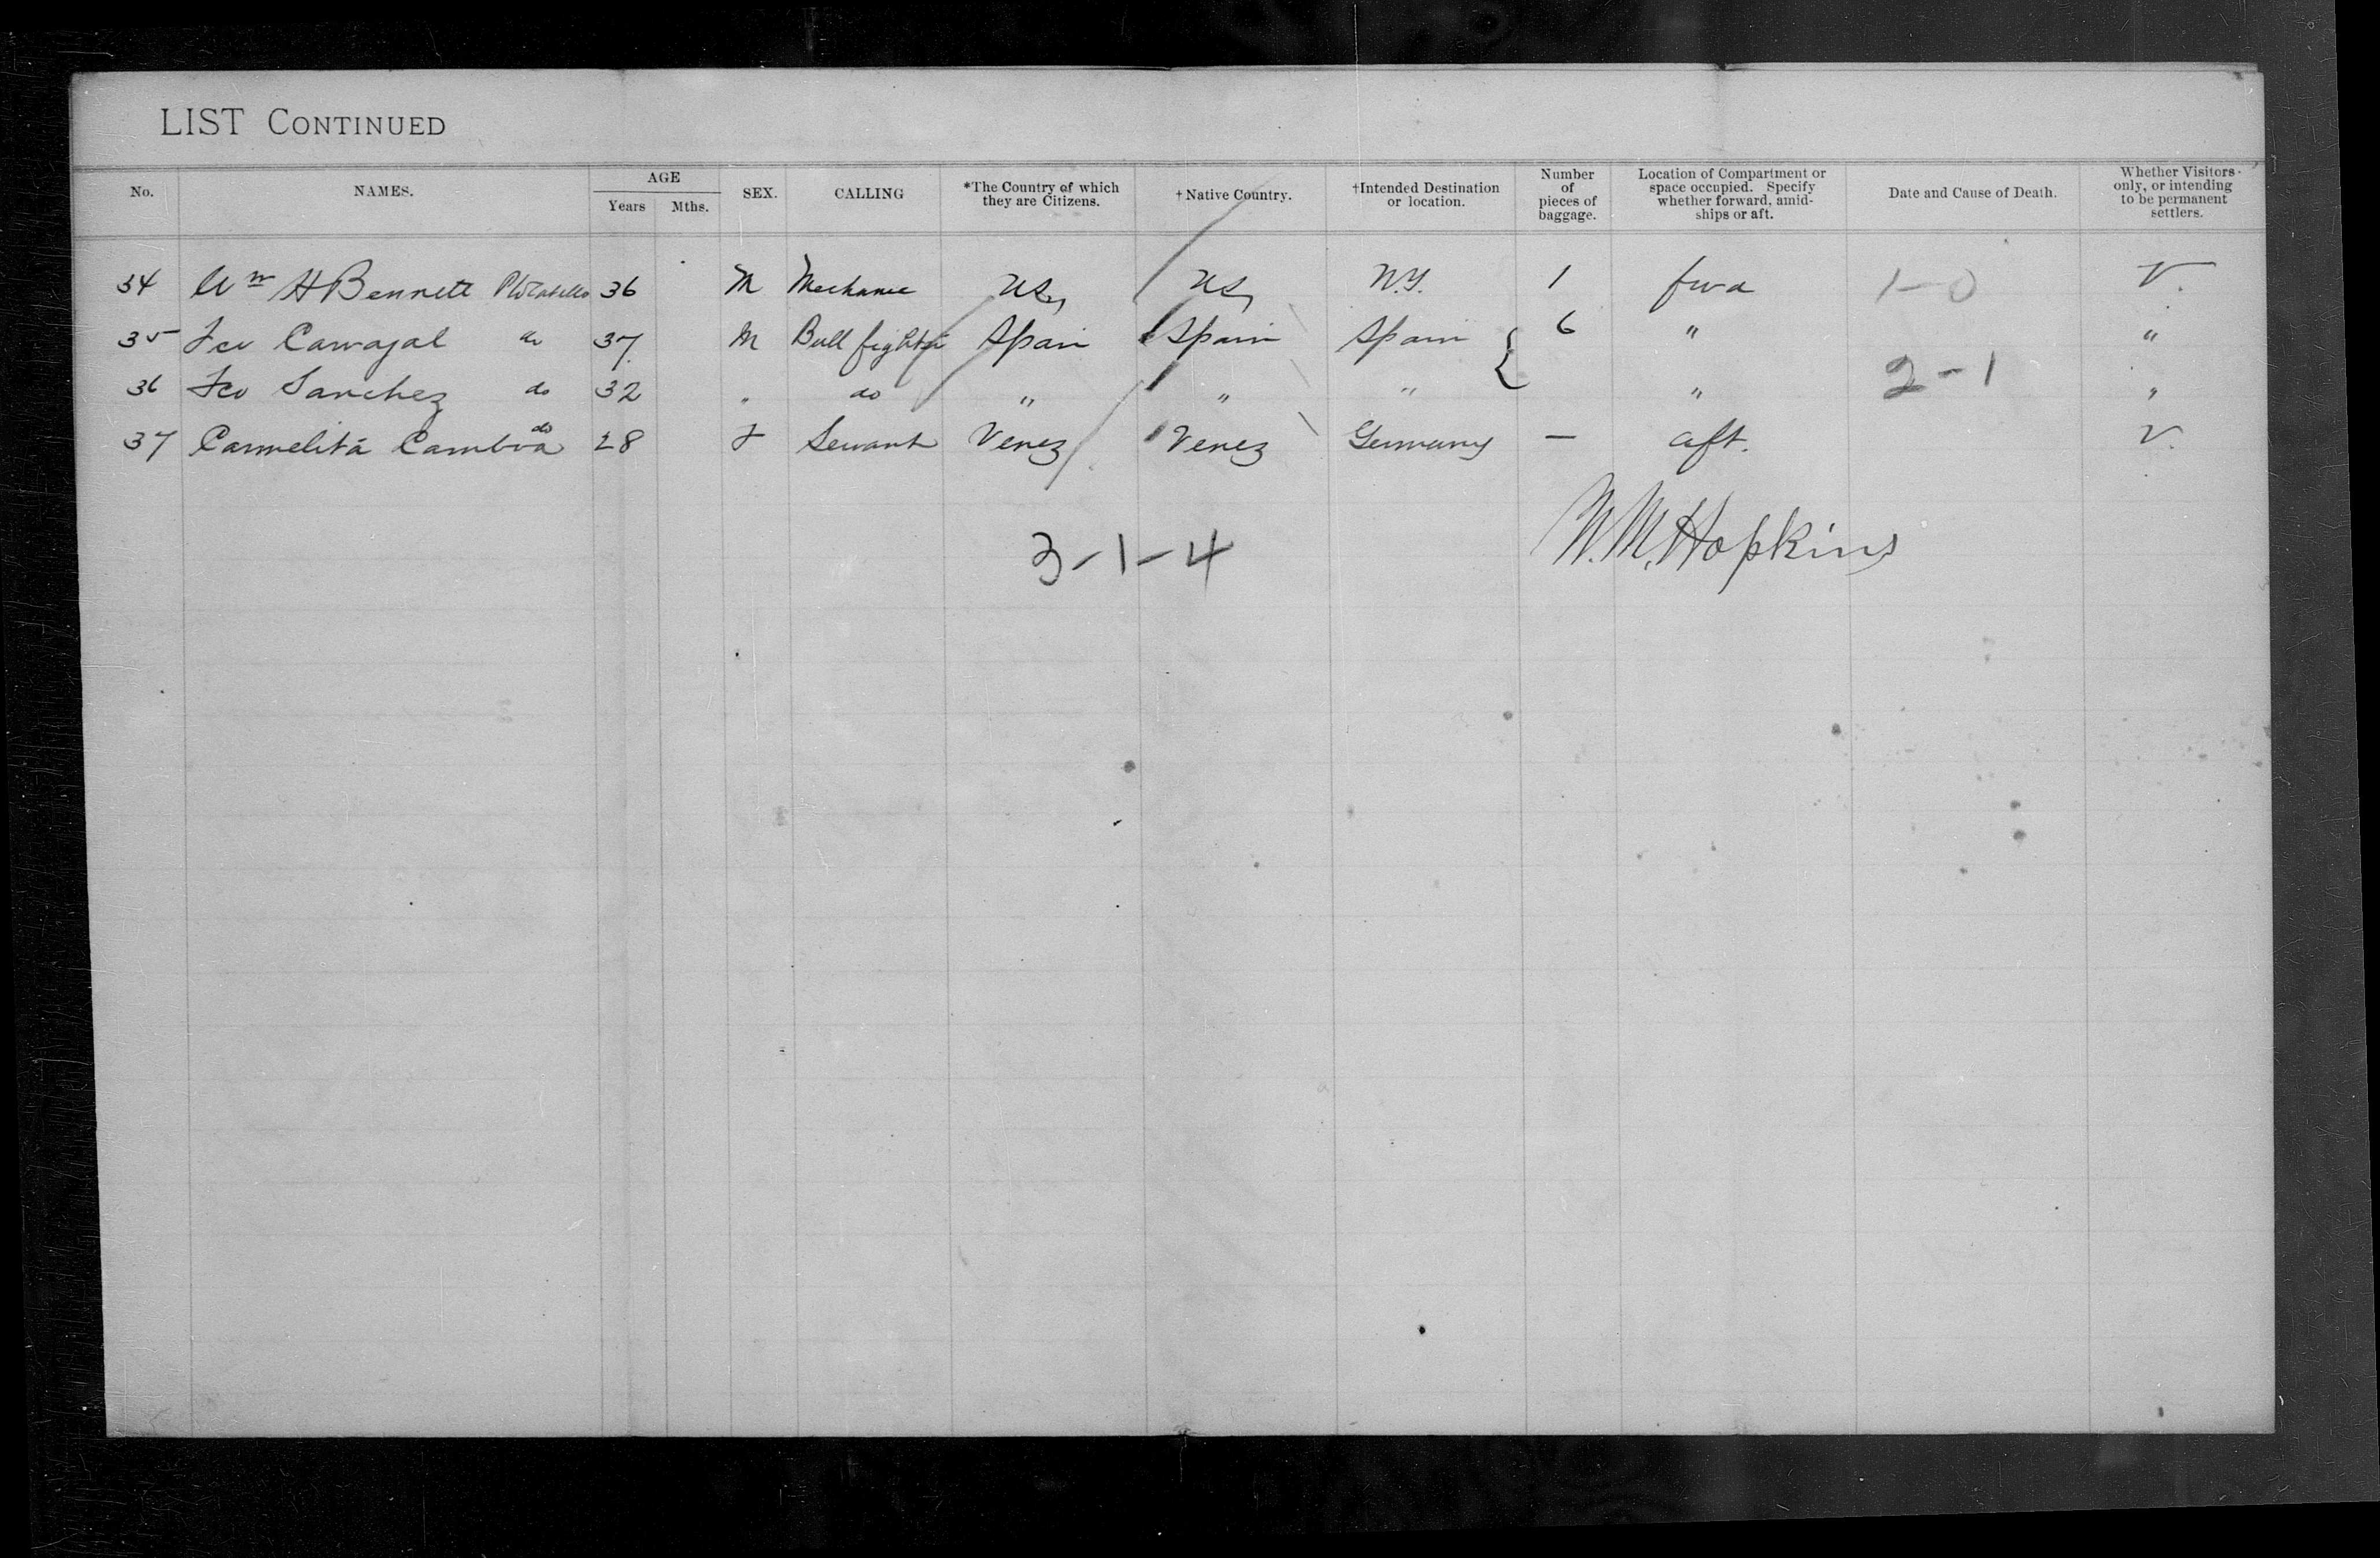 LIST CONTINUED
No. NAMES. AGE Years Mths. SEX. CALLING *The Country of which they are Citizens. †Native Country. †Intended Destination or location. Number of pieces of baggage. Location of Compartment or space occupied. Specify whether forward, amid-ships or aft. Date and Cause of Death. Whether Visitors only, or intending to be permanent settlers.
34 Wm H Bennett 36 M Mechanic US, US, N.Y. 1 fwd 1-0 V.
35 Fco Carvajal do 37 M Bull fighter Spain Spain Spain { 6 " "
36 Fco Sanchez do 32 " do " " " " 2-1 "
37 Carmelita Camboa do 28 F Servant Venez Venez Germany — aft. V.
3-1-4
W.M. Hopkins